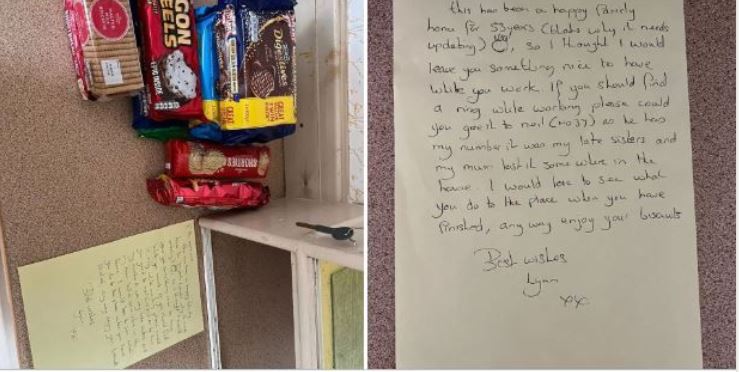 WAGON
WHEELS
Digestives
SHORTIES
this has been a happy family
home for 53 years (thats why it needs
updating) , so I thought I would
leave you something nice to have
while you work. If you should find
a ring while working please could
you give it to neil (no 37) as he has
my number it was my late sisters and
my mum lost it some where in the
house. I would love to see what
you do to the place when you have
finished, any way enjoy your biscuits
Best wishes
Lynn
xx